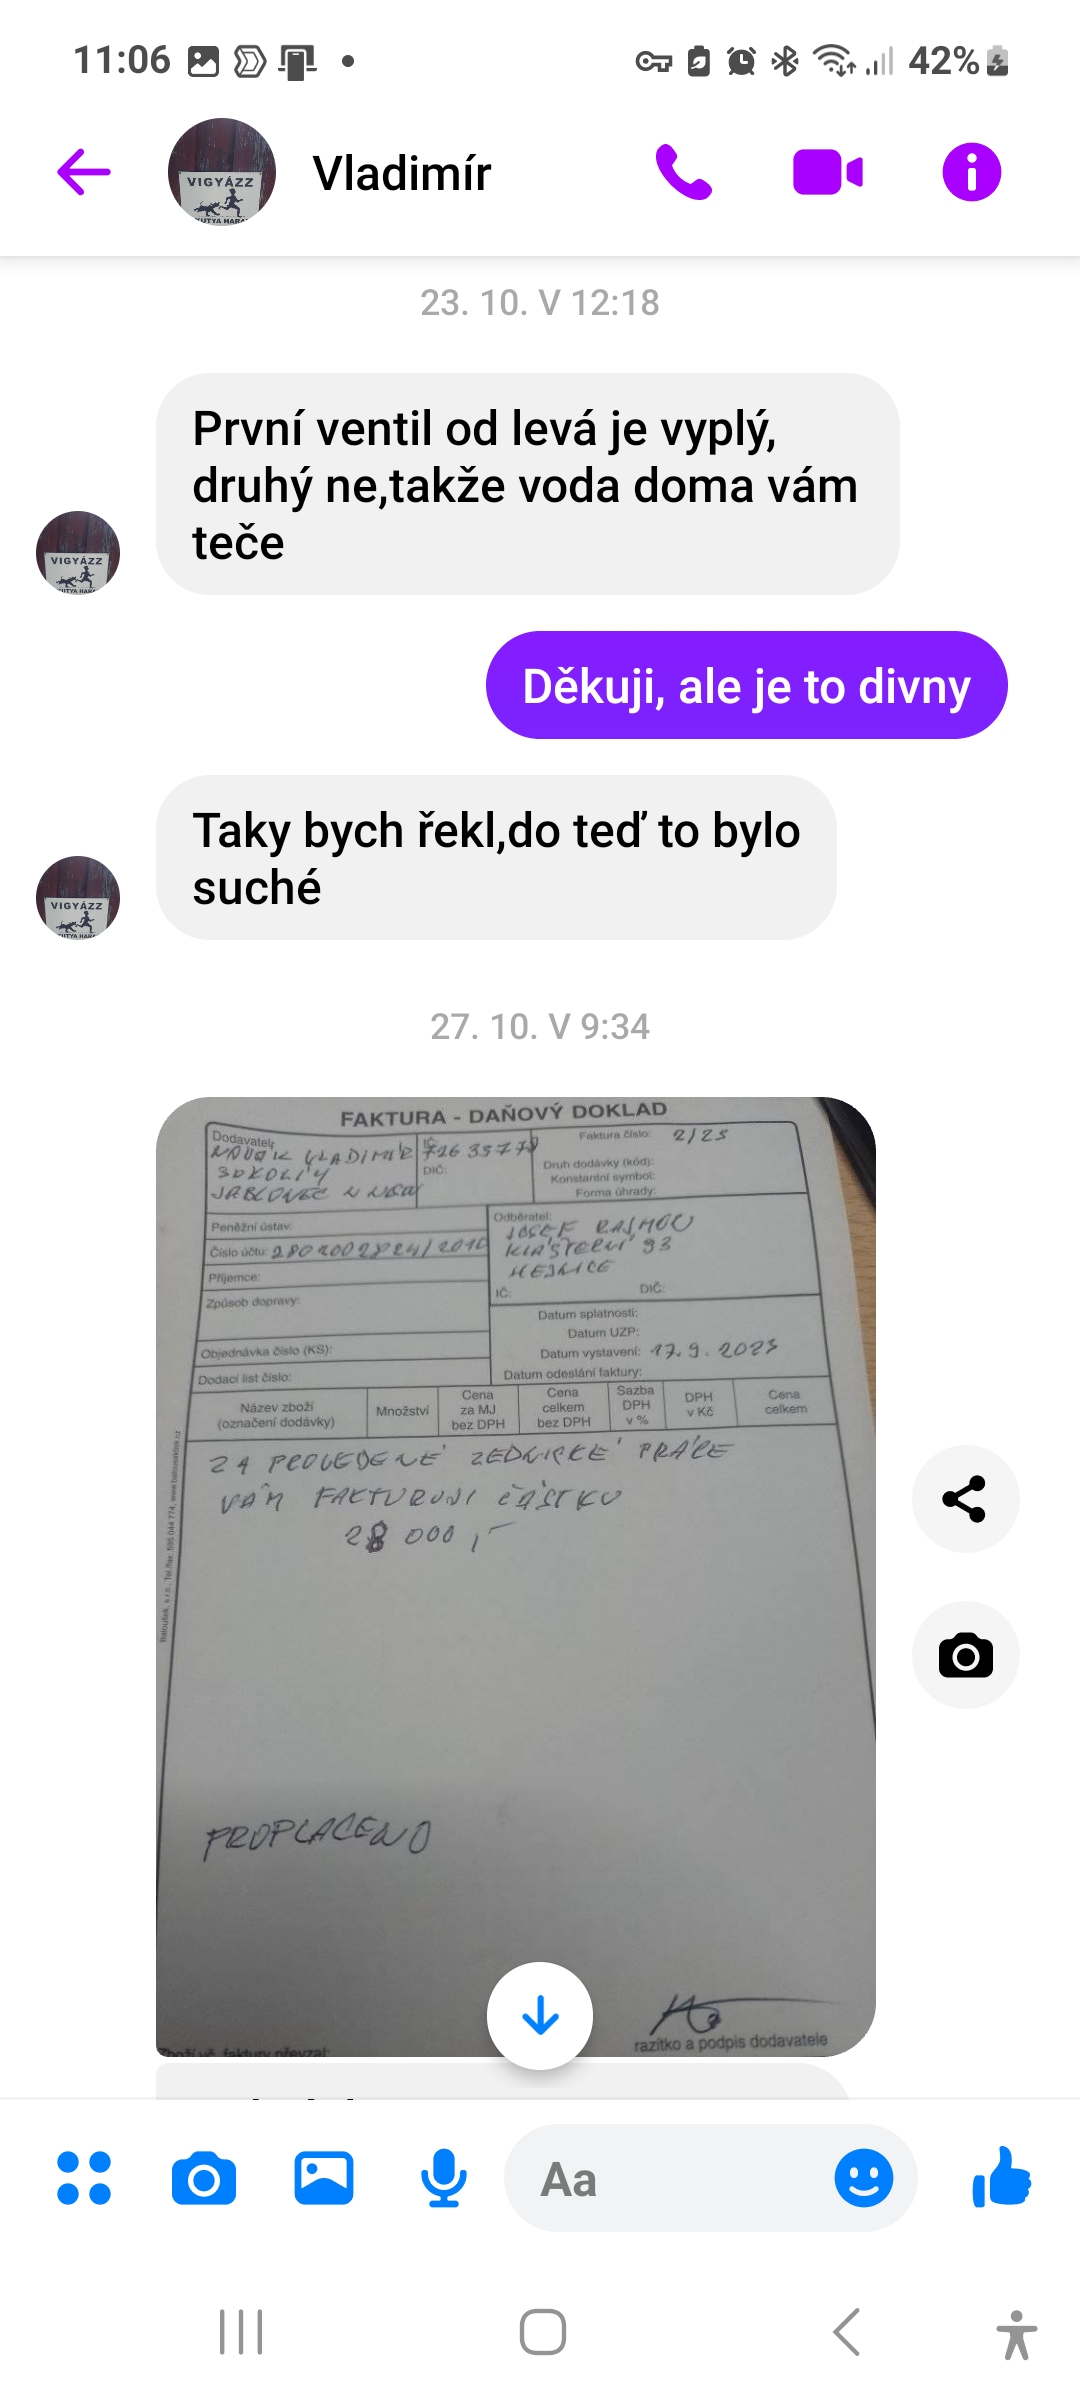 11:06
42%
Vladimír
VIGYÁZZ
KUTYA HARAP
23. 10. V 12:18
První ventil od levá je vyplý,
druhý ne,takže voda doma vám
teče
VIGYÁZZ
Děkuji, ale je to divny
Taky bych řekl,do teď to bylo
suché
VIGYÁZZ
27. 10. V 9:34
FAKTURA - DAŇOVÝ DOKLAD
Dodavatel:
NOVÁK VLADIMÍR
JABLONEC N NISOU
IČ:
DIČ:
Faktura číslo: 2/23
Druh dodávky (kód):
Konstantní symbol:
Forma úhrady:
Peněžní ústav:
Číslo účtu: 2802002824/2010
Příjemce:
Způsob dopravy:
Objednávka číslo (KS):
Dodací list číslo:
Odběratel:
JOSEF
KLÁŠTERNÍ 93
HEJNICE
IČ: DIČ:
Datum splatnosti:
Datum UZP:
Datum vystavení: 17.9.2023
Datum odeslání faktury:
Název zboží
(označení dodávky)
Množství
Cena
za MJ
bez DPH
Cena
celkem
bez DPH
Sazba
DPH
v %
DPH
v Kč
Cena
celkem
ZA PROVEDENÉ ZEDNICKÉ PRÁCE
VÁM FAKTURUJI ČÁSTKU
28 000,-
PROPLACENO
razítko a podpis dodavatele
Zboží vč. faktury převzal:
Aa